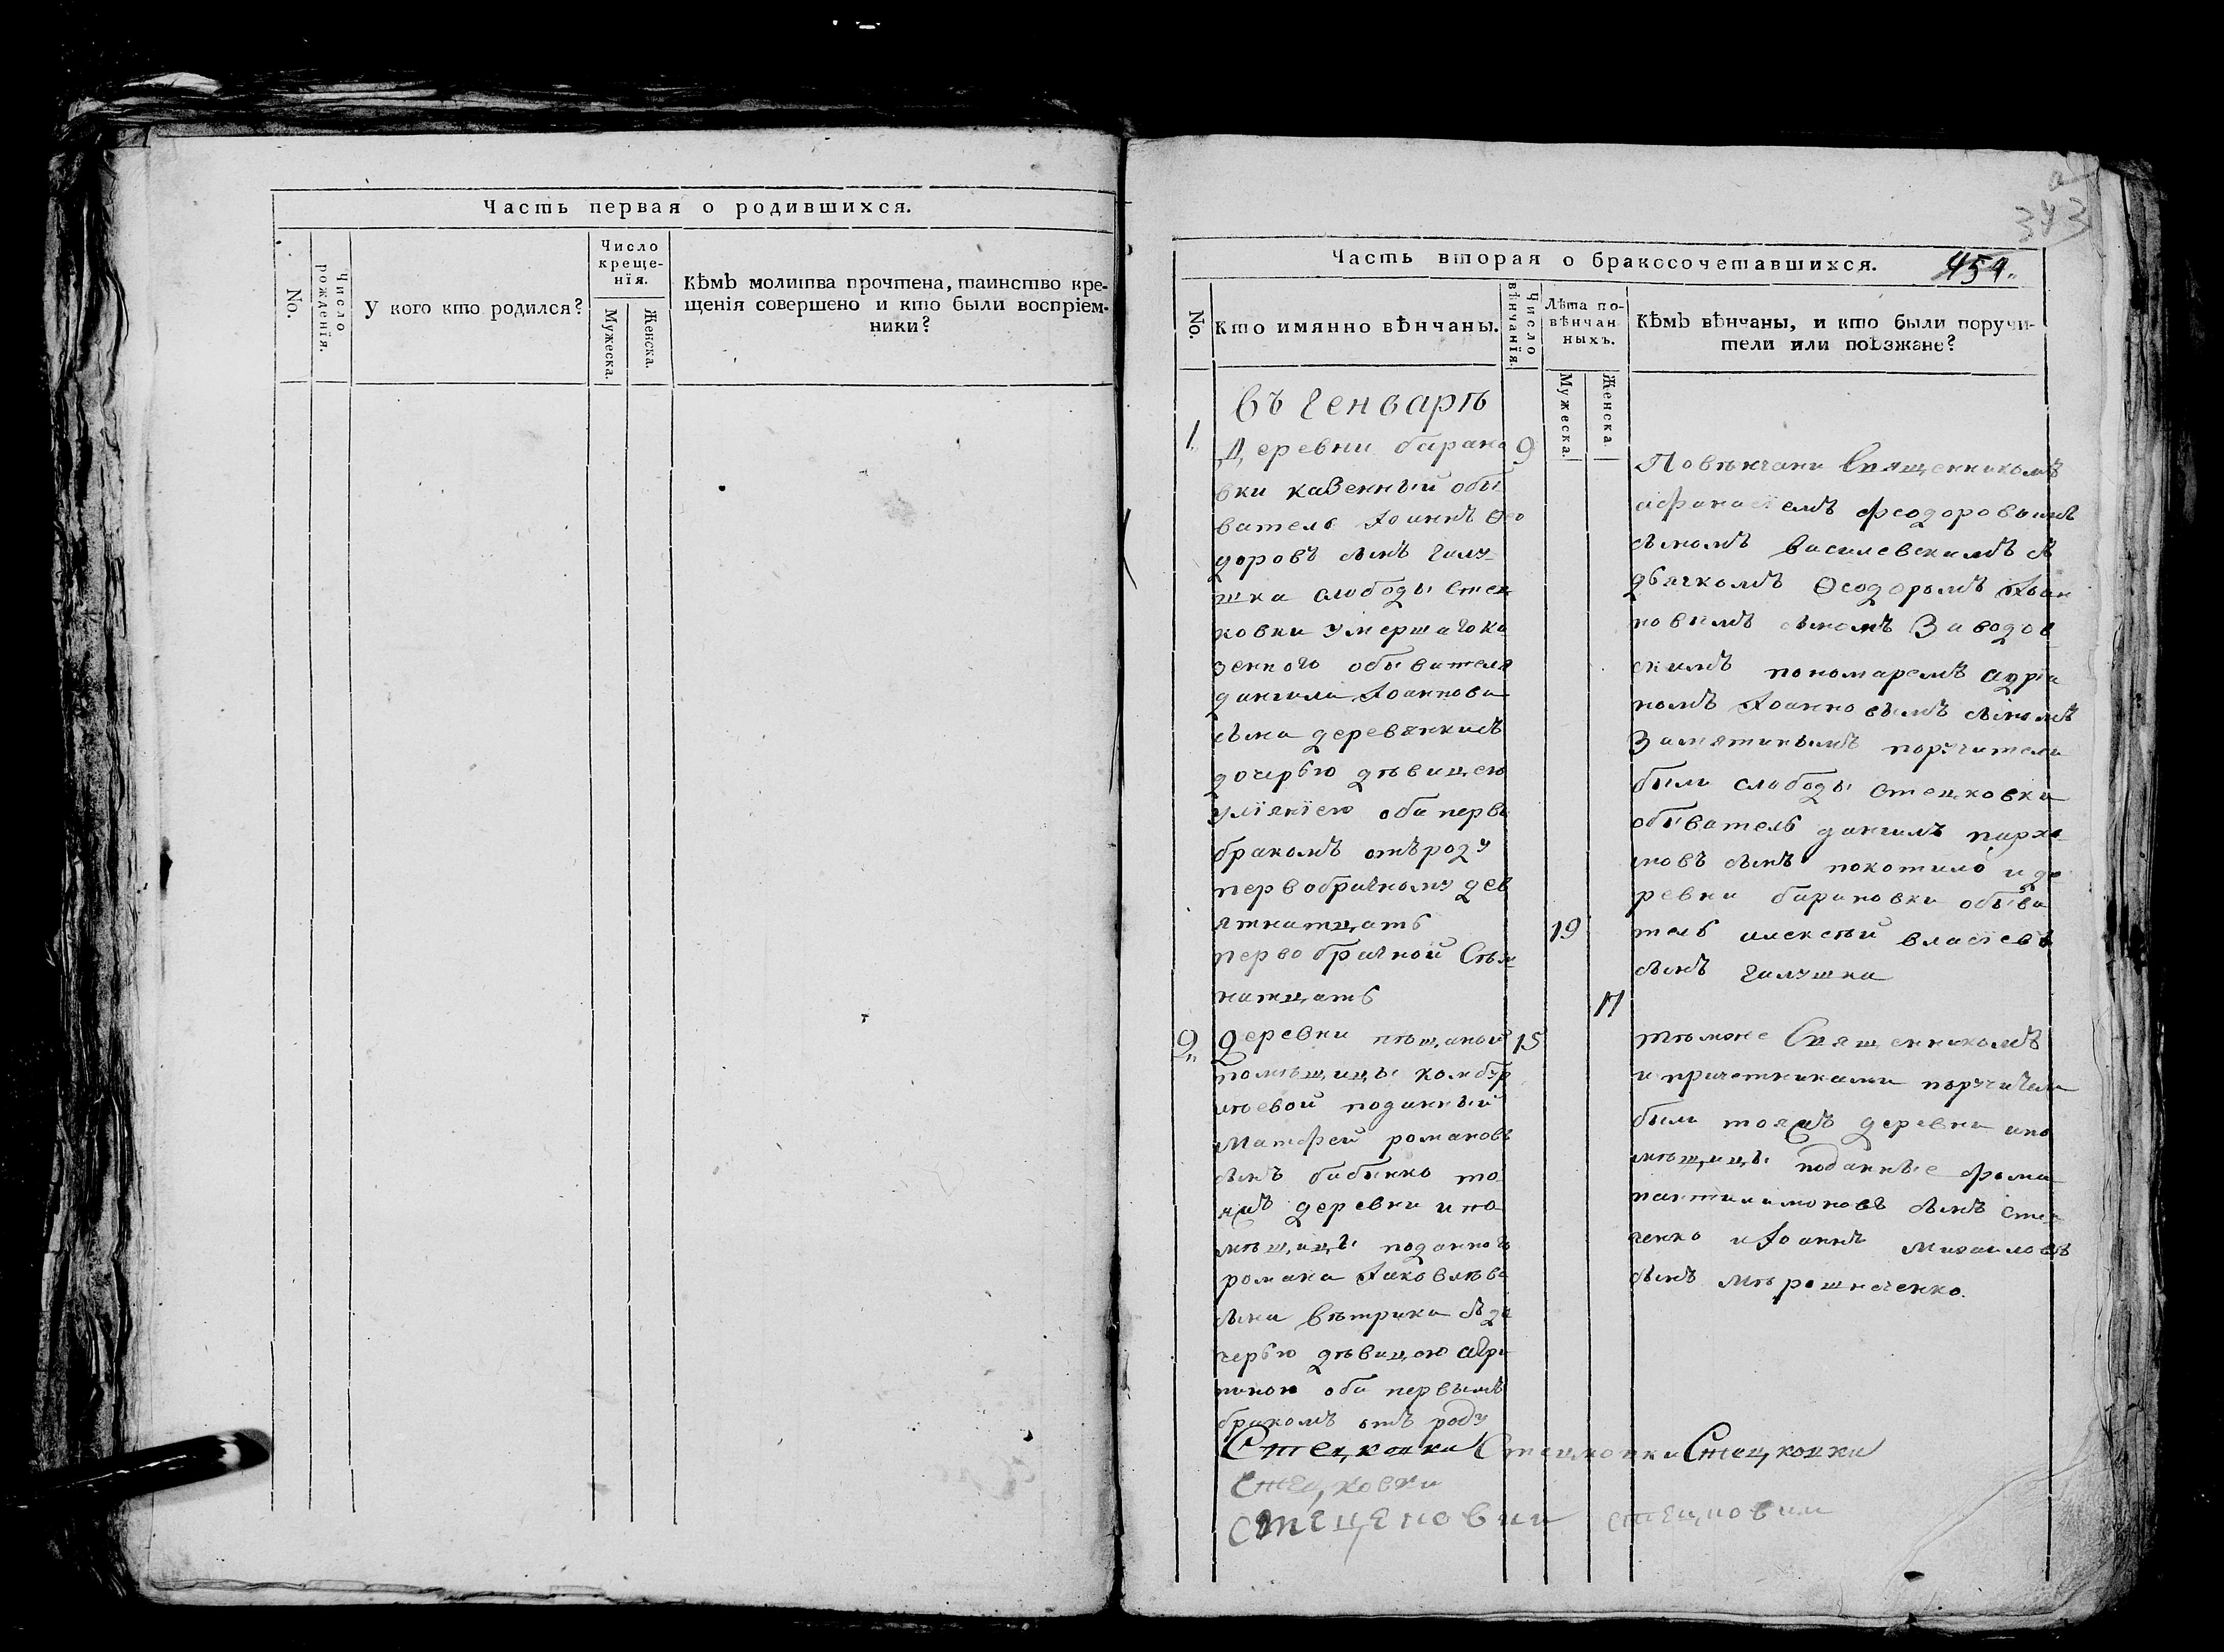 Часть первая о родившихся.
No.
Число рожденїя.
У кого кто родился?
Число
креще-
нїя.
Мужеска.
Женска.
Кѣмъ молитва прочтена, таинство кре-
щенїя совершено и кто были воспрїем-
ники?
343
Часть вторая о бракосочетавшихся.
454.
No.
Кто имянно вѣнчаны.
Число вѣнчанїя.
Лѣта по-
вѣнчан
ныхъ.
Мужеска.
Женска.
Кѣмъ вѣнчаны, и кто были поручи-
тели или поѣзжане?
въ Генварѣ
1. Деревни барано 9
вки казенный обы
ватель Іоаннъ Ѳео
доровъ сынъ галу-
шка слободы стец
ковки умершаго ка
зенного обывателя
данила Іоаннова
сына деревянки съ
дочерью дѣвицею
улїянїею оба первы
бракомъ отъ роду
первобрачному дев
ятнатцать
19
первобрачной Семь
натцать
17
Повѣнчани Священникомъ
афанасїемъ феодоровымъ
сыномъ василевскимъ съ
дьячкомъ Ѳеодоромъ Іоан
новымъ сыномъ Заводов
скимъ пономаремъ адрїа
номъ Іоанновымъ сыномъ
Замятинымъ поручители
были слободы стецковки
обыватель данилъ пархо
мовъ сынъ покотило и де
ревни барановки обыва
тель алексѣй власїевъ
сынъ галушка
2. деревни пѣщаной 15
помѣщицы комбур
лѣевой поданный
Матфей романовъ
сынъ бабенко то
яжъ деревни и по
мѣщицы поданного
романа Іаковлѣва
сына вѣтрика съ до
черью дѣвицею агри
пиною оба первымъ
бракомъ отъ роду
тѣмже Священникомъ
и причетниками поручители
были тояжъ деревни и по
мѣщицы поданные фома
пантилимоновъ сынъ
и Іоаннъ михаиловъ
сынъ мѣрошниченко.
Стецковки Стецковки Стецковки
Стецковки
стецковки стецковки